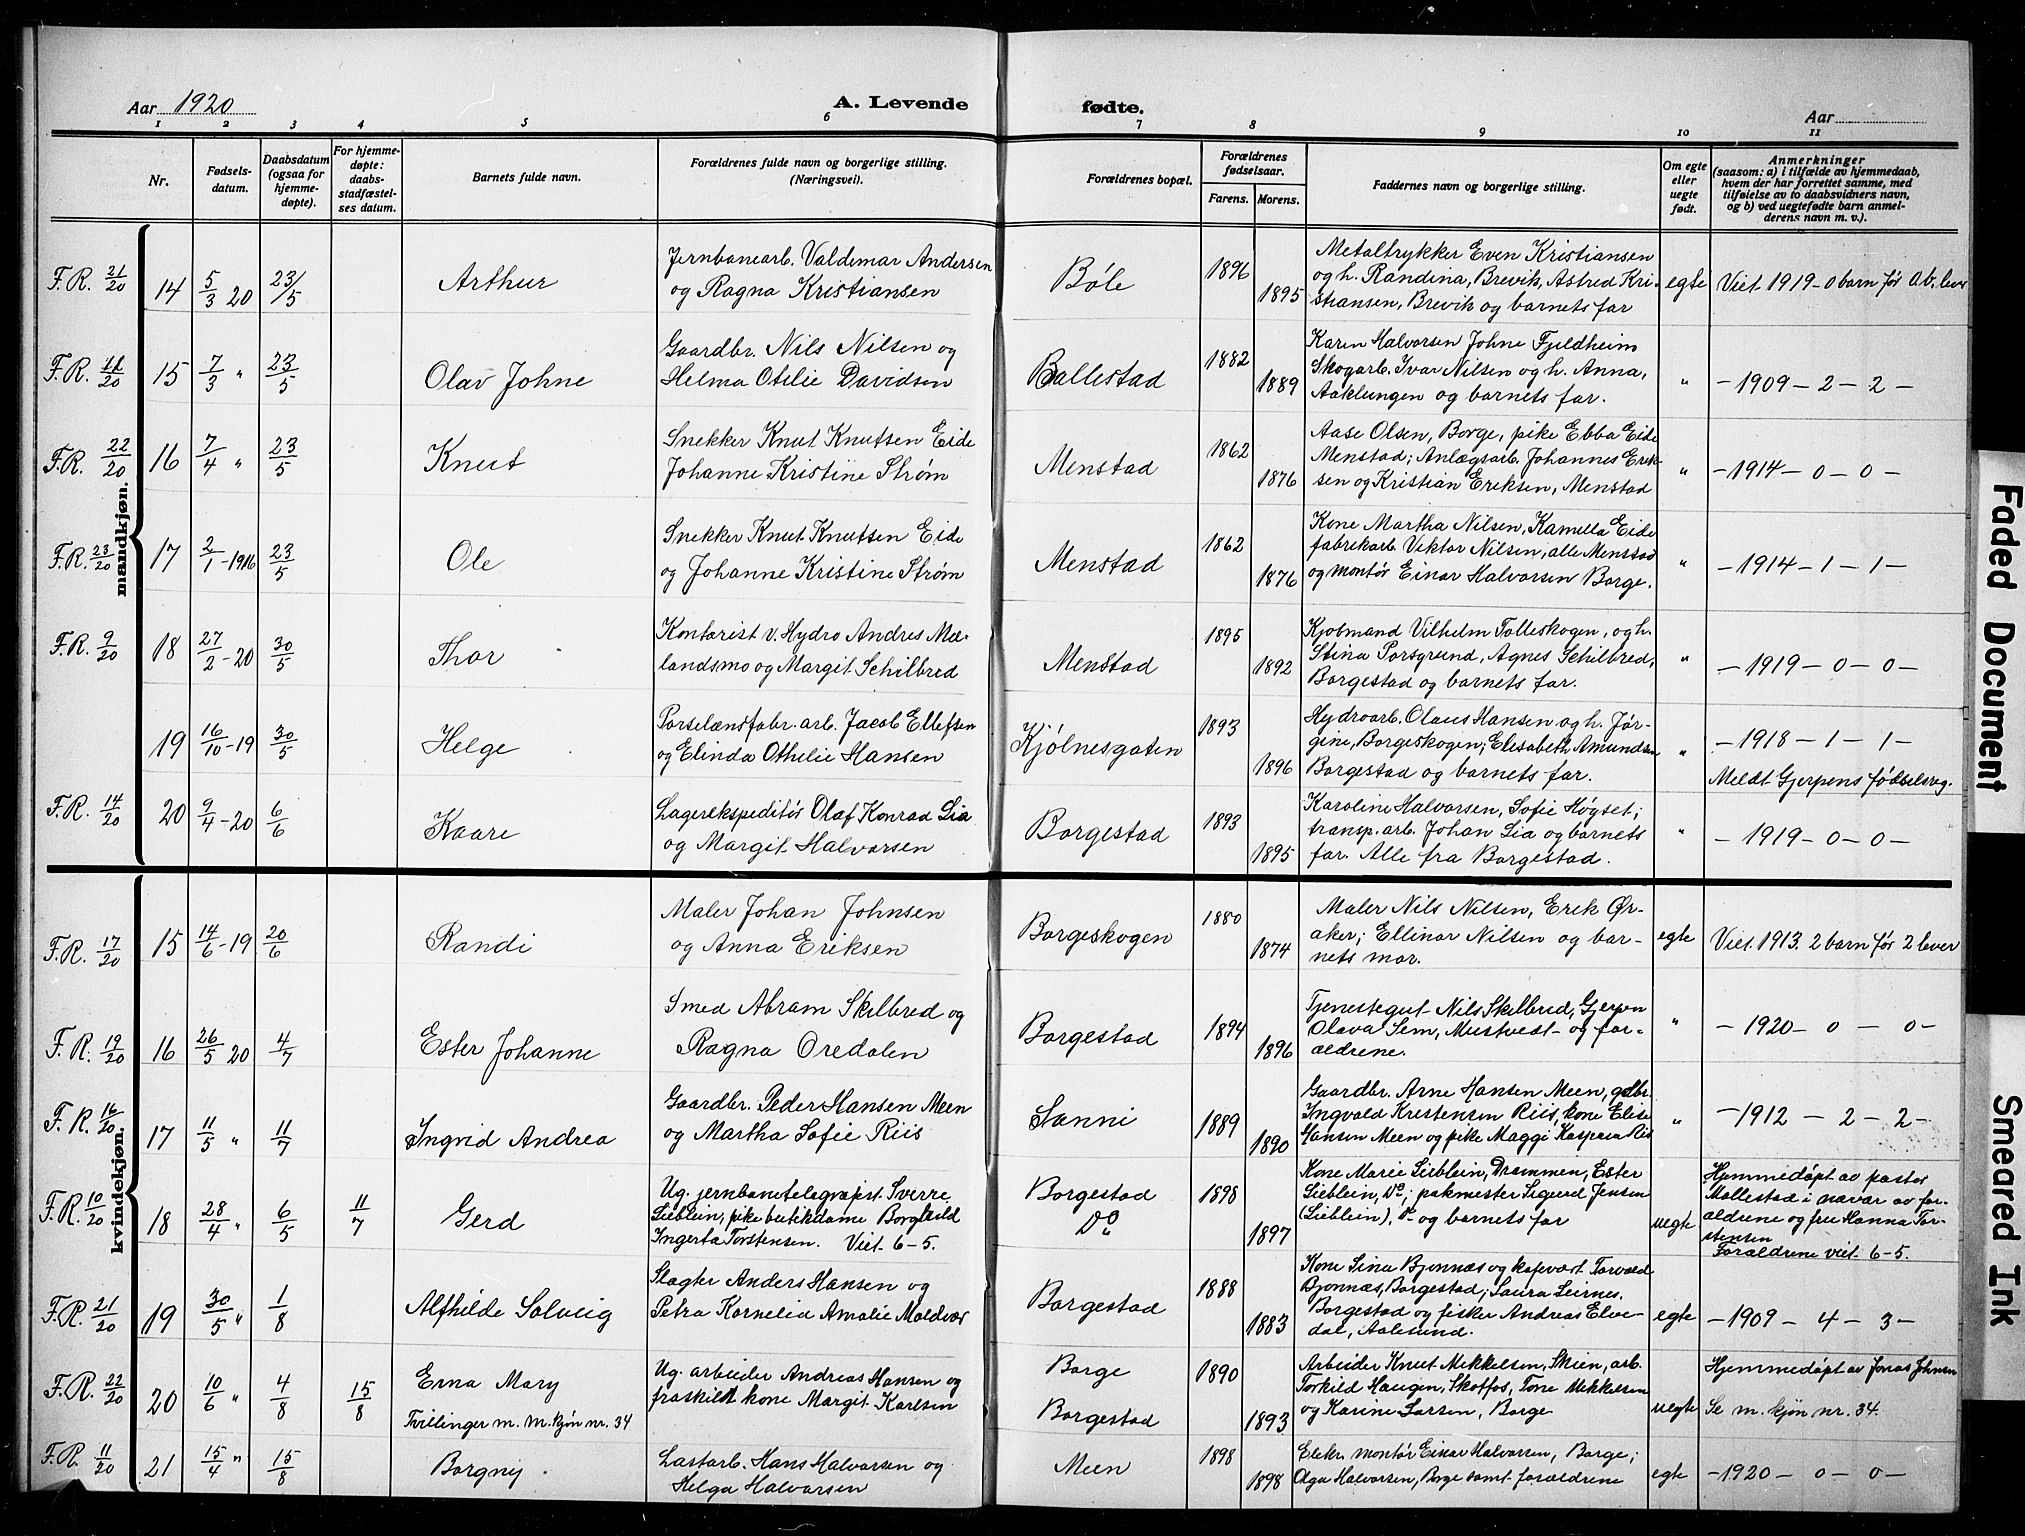 Aar 1920
A. Levende fødte.
Aar
1 2 3 4 5 6 7 8 9 10 11
Nr.
Fødsels-
datum.
Daabsdatum
(ogsaa for
hjemme-
døpte).
For hjemme-
døpte:
daabs-
stadfæstel-
ses datum.
Barnets fulde navn.
Forældrenes fulde navn og borgerlige stilling.
(Næringsvei).
Forældrenes bopæl.
Forældrenes
fødselsaar.
Farens. Morens.
Faddernes navn og borgerlige stilling.
Om egte
eller
uegte
født.
Anmerkninger
(saasom: a) i tilfælde av hjemmedaab,
hvem der har forrettet samme, med
tilføielse av to daabsvidners navn,
og b) ved uegtefødte barn anmel-
derens navn m. v.).
mandkjøn.
F.R. 21/20 14 5/3 20 23/5 Arthur
Jernbanearb. Valdemar Andersen
og Ragna Kristiansen
Bøle 1896 1895
Metaltrykker Even Kristiansen
og h. Randina, Brevik, Astred Kri-
stiansen, Brevik og barnets far
egte
Viet 1919 – 0 barn før 0 av. lever
F.R. 11/20 15 7/3 " 23/5 Olav Johne
Gaardbr. Nils Nilsen og
Helma Otelie Davidsen
Ballestad 1882 1889
Karen Halvorsen Johne Fjeldheim
Skogarb. Ivar Nilsen og h. Anna,
Aaklungen og barnets far.
"
– 1909 – 2 – 2 –
F.R. 22/20 16 7/4 " 23/5 Knut
Snekker Knut Knutsen Eide
Johanne Kristine Strøm
Menstad 1862 1876
Aase Olsen, Borge, pike Ebba Eide
Menstad; Anlægsarb. Johannes Erik-
sen og Kristian Eriksen, Menstad
"
– 1914 – 0 – 0 –
F.R. 23/20 17 2/1 – 1916 23/5 Ole
Snekker Knut Knutsen Eide
og Johanne Kristine Strøm
Menstad 1862 1876
Kone Martha Nilsen, Kamilla Eide
fabrikarb. Viktor Nilsen, alle Menstad
og montør Einar Halvorsen Borge.
"
– 1914 – 1 – 1 –
F.R. 9/20 18 27/2 – 20 30/5 Thor
Kontorist v. Hydro Andres Mæ-
landsmo og Margit Schilbred
Menstad 1895 1892
Kjøbmand Vilhelm Tolleskogen, og h.
Stina Porsgrund, Agnes Schilbred,
Borgestad og barnets far.
"
– 1919 – 0 – 0 –
19 16/10 – 19 30/5 Helge
Porselænsfabr. arb. Jacob Ellefsen
og Elinda Othelie Hansen
Kjølnesgaten 1893 1896
Hydroarb. Olaus Hansen og h. Jør-
gine, Borgeskogen; Elisabeth Amundsen
Borgestad og barnets far.
"
– 1918 – 1 – 1 –
Meldt Gjerpens fødselsreg.
F.R. 14/20 20 9/4 – 20 6/6 Kaare
Lagerekspeditør Olaf Konrad Lia
og Margit Halvorsen
Borgestad 1893 1895
Karoline Halvorsen, Sofie Høgset;
transp. arb. Johan Lia og barnets
far. Alle fra Borgestad.
"
– 1919 – 0 – 0 –
kvindekjøn.
F.R. 17/20 15 14/6 – 19 20/6 Randi
Maler Johan Johnsen
og Anna Eriksen
Borgeskogen 1880 1874
Maler Nils Nilsen, Erik Ør-
aker; Ellinor Nilsen og bar-
nets mor.
egte
Viet 1913. 2 barn før 2 lever
F.R. 19/20 16 26/5 20 4/7 Ester Johanne
Smed Abram Skilbred og
Ragna Oredalen
Borgestad 1894 1896
Tjenestegut Nils Skilbred, Gjerpen
Olava Sem, Mustvedt og for-
ældrene.
"
– 1920 – 0 – 0 –
F.R. 16/20 17 11/5 " 11/7 Ingrid Andrea
Gaardbr. Peder Hansen Meen
og Martha Sofie Riis
Sanni 1889 1890
Gaardbr. Arne Hansen Meen, gdbr.
Ingvald Kristensen Riis, kone Elise
Hansen Meen og pike Maggi Kaspara Riis
"
– 1912 – 2 – 2 –
F.R. 10/20 18 28/4 " 6/5 11/7 Gerd
Ug. jernbanetelegrapist Sverre
Lieblein, pike butikdame Borghild
Ingerta Torstensen. Viet 6-5.
Borgestad
Do 1898 1897
Kone Marie Lieblein, Drammen, Ester
Lieblein, Do; pakmester Sigurd Jensen
(Lieblein), Do og barnets far
uegte
Hjemmedøpt av pastor
Mollestad i nævær av for-
ældrene og fru Hanna Tor-
stensen
Forældrene viet 6-5.
F.R. 21/20 19 30/5 " 1/8 Alfhilde Solveig
Slagter Anders Hansen og
Petra Kornelia Amalie Moldvær
Borgestad 1888 1883
Kone Lina Bjønnæs og kafevært Torvald
Bjønnæs, Borgestad; Laura Leirnes,
Borgestad og fisker Andreas Elve-
dal, Aalesund.
egte
– 1909 – 4 – 3 –
F.R. 22/20 20 10/6 " 4/8 15/8 Erna Mary
Tvillinger m. m.kjøn nr. 34
Ug. arbeider Andreas Hansen og
fraskildt kone Margit Karlsen
Borge
Borgestad 1890 1893
Arbeider Knut Mikkelsen, Skien, arb.
Torkild Haugen, Skotfos, Tone Mikkelsen
og Karine Larsen, Borge
uegte
Hjemmedøpt av Jonas Johnsen
Se m. kjøn nr. 34.
F.R. 11/20 21 15/4 " 15/8 Borgny
Lastarb. Hans Halvorsen og
Helga Halvorsen
Meen 1898 1898
Elektr. montør Einar Halvorsen, Borge;
Olga Halvorsen, Borge samt forældrene
egte
– 1920 – 0 – 0 –
Faded Document
Smeared Ink